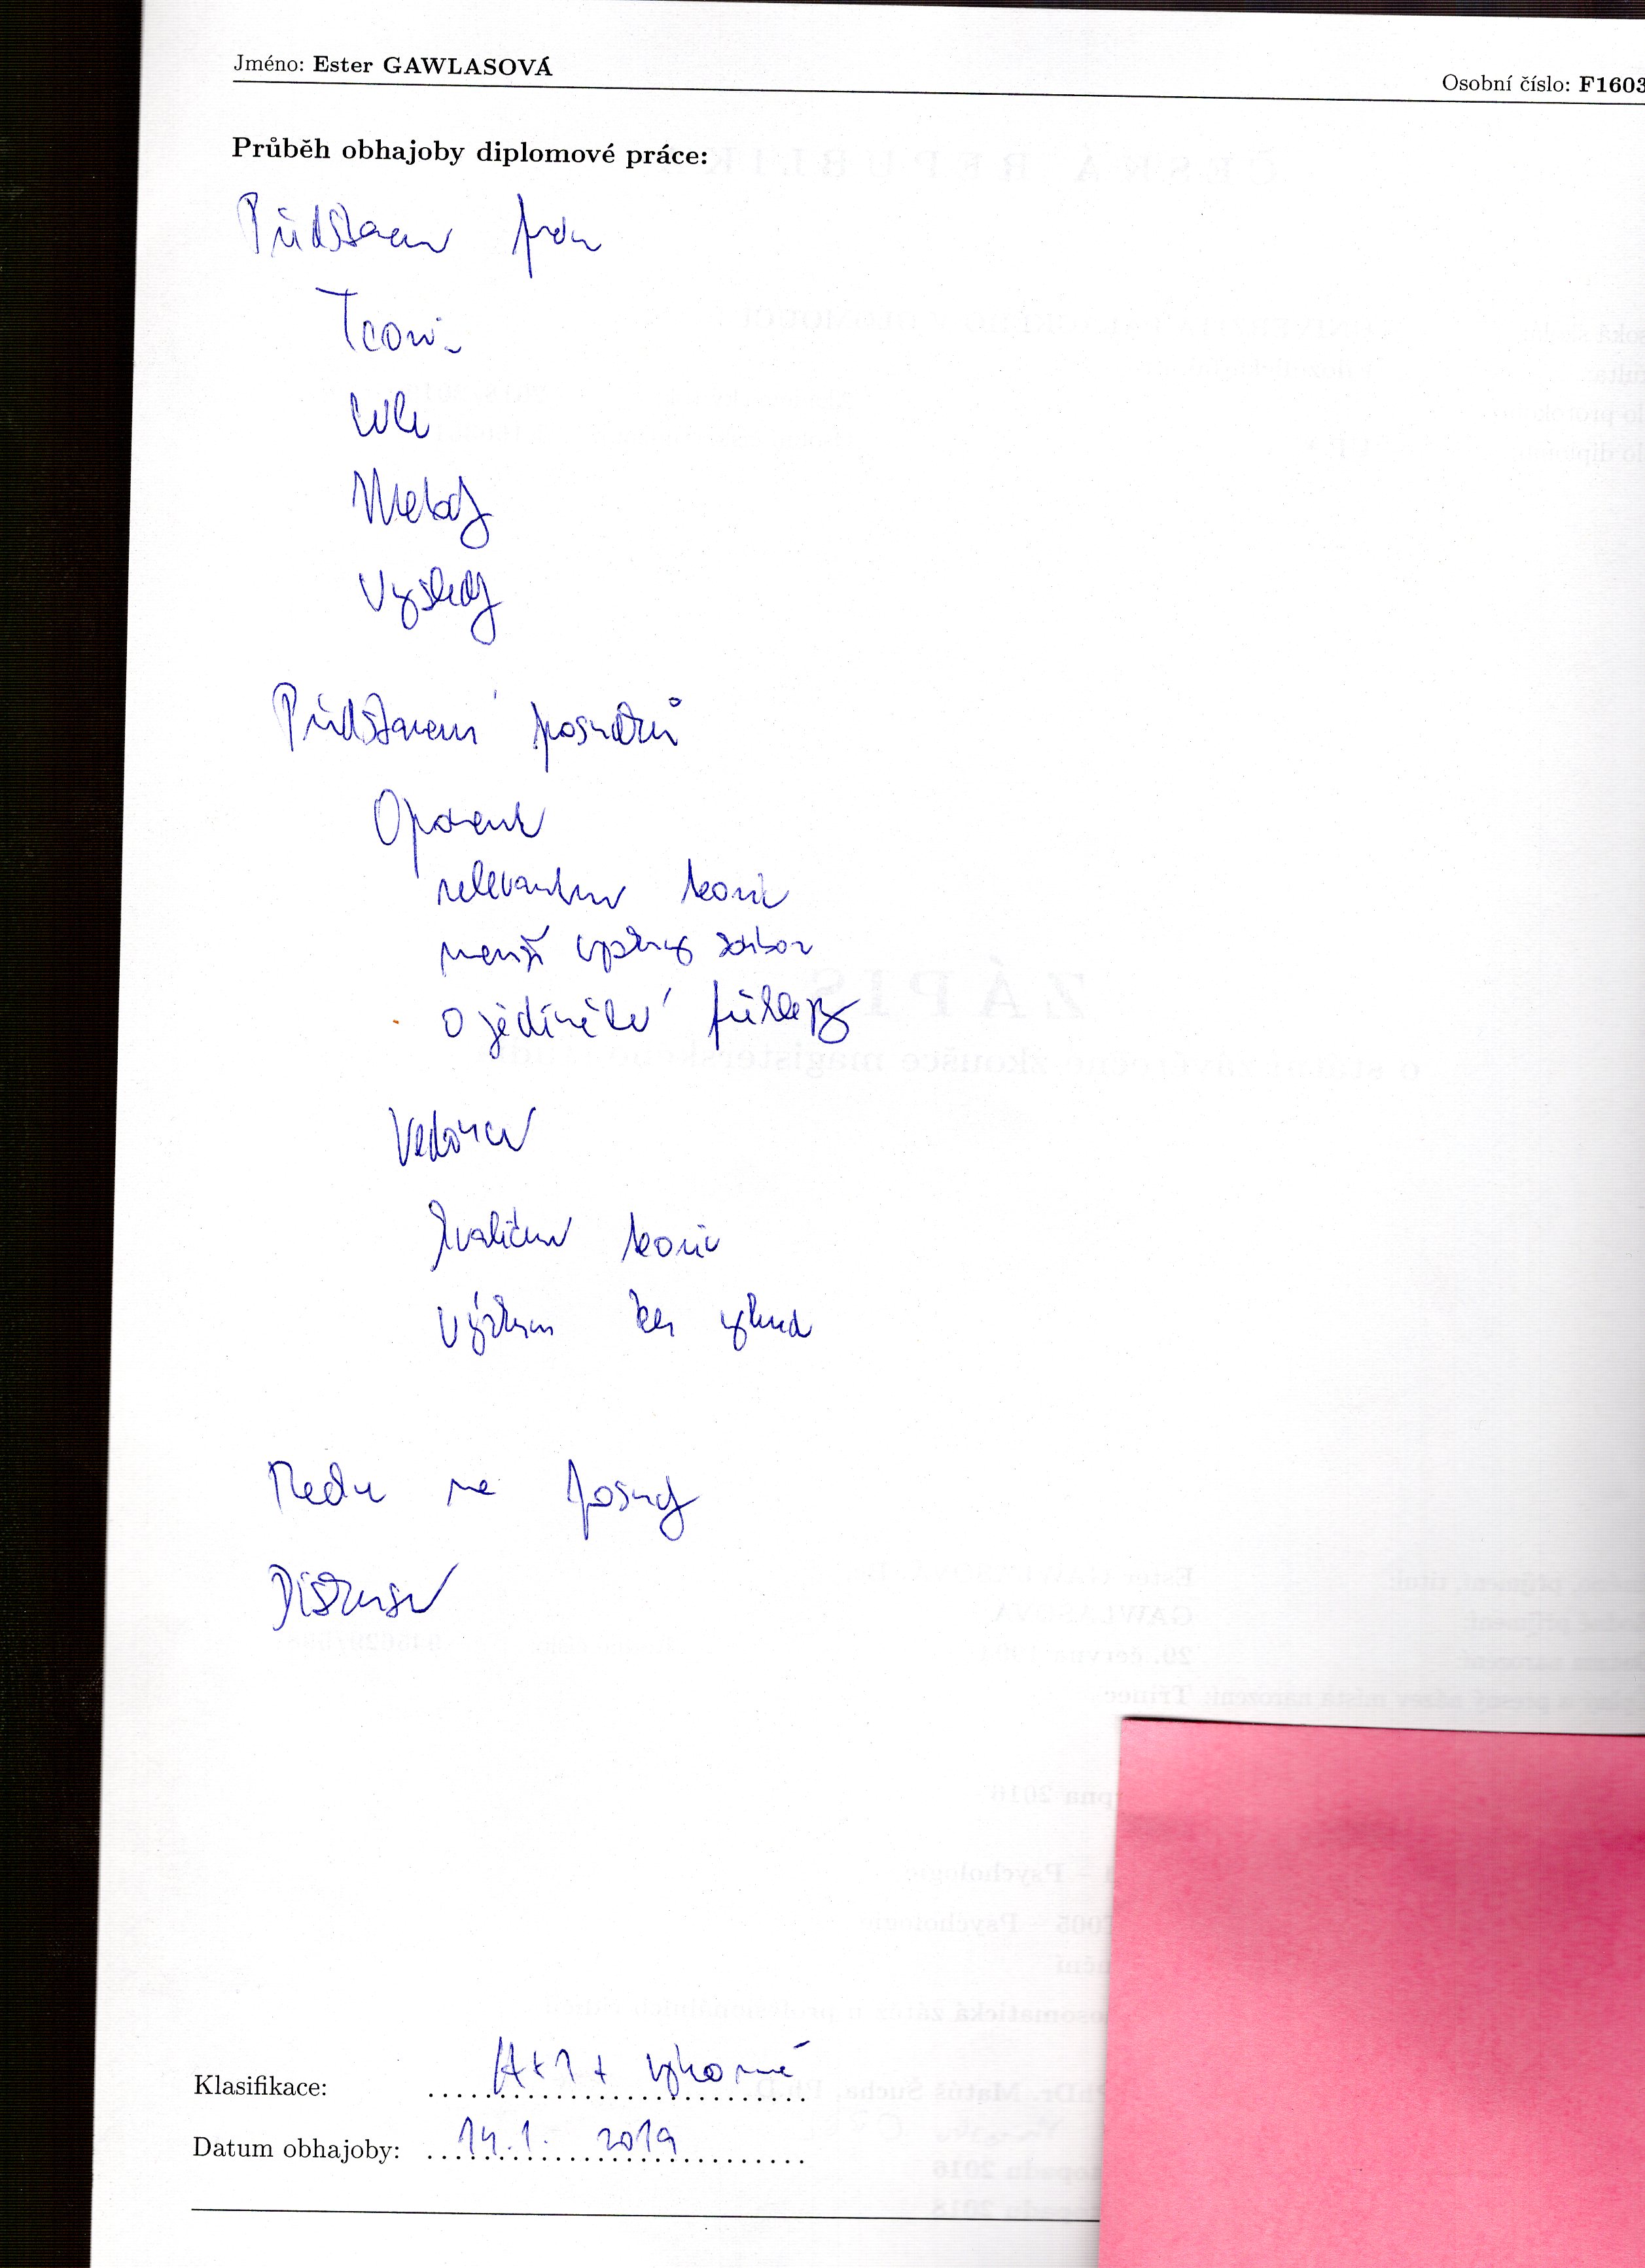 Jméno: Ester GAWLASOVÁ
Osobní číslo: F1603
Průběh obhajoby diplomové práce:
Představení práce
Teorie
Cíle
Metody
Výsledky
Představení posudků
Oponent
relevantní teorie
menší výzkumný soubor
ojedinělé překlepy
Vedoucí
kvalitní teorie
výzkum bez výhrad
Reakce na posudky
Diskuse
Klasifikace: A + 1 + výborně
Datum obhajoby: 14.1. 2019